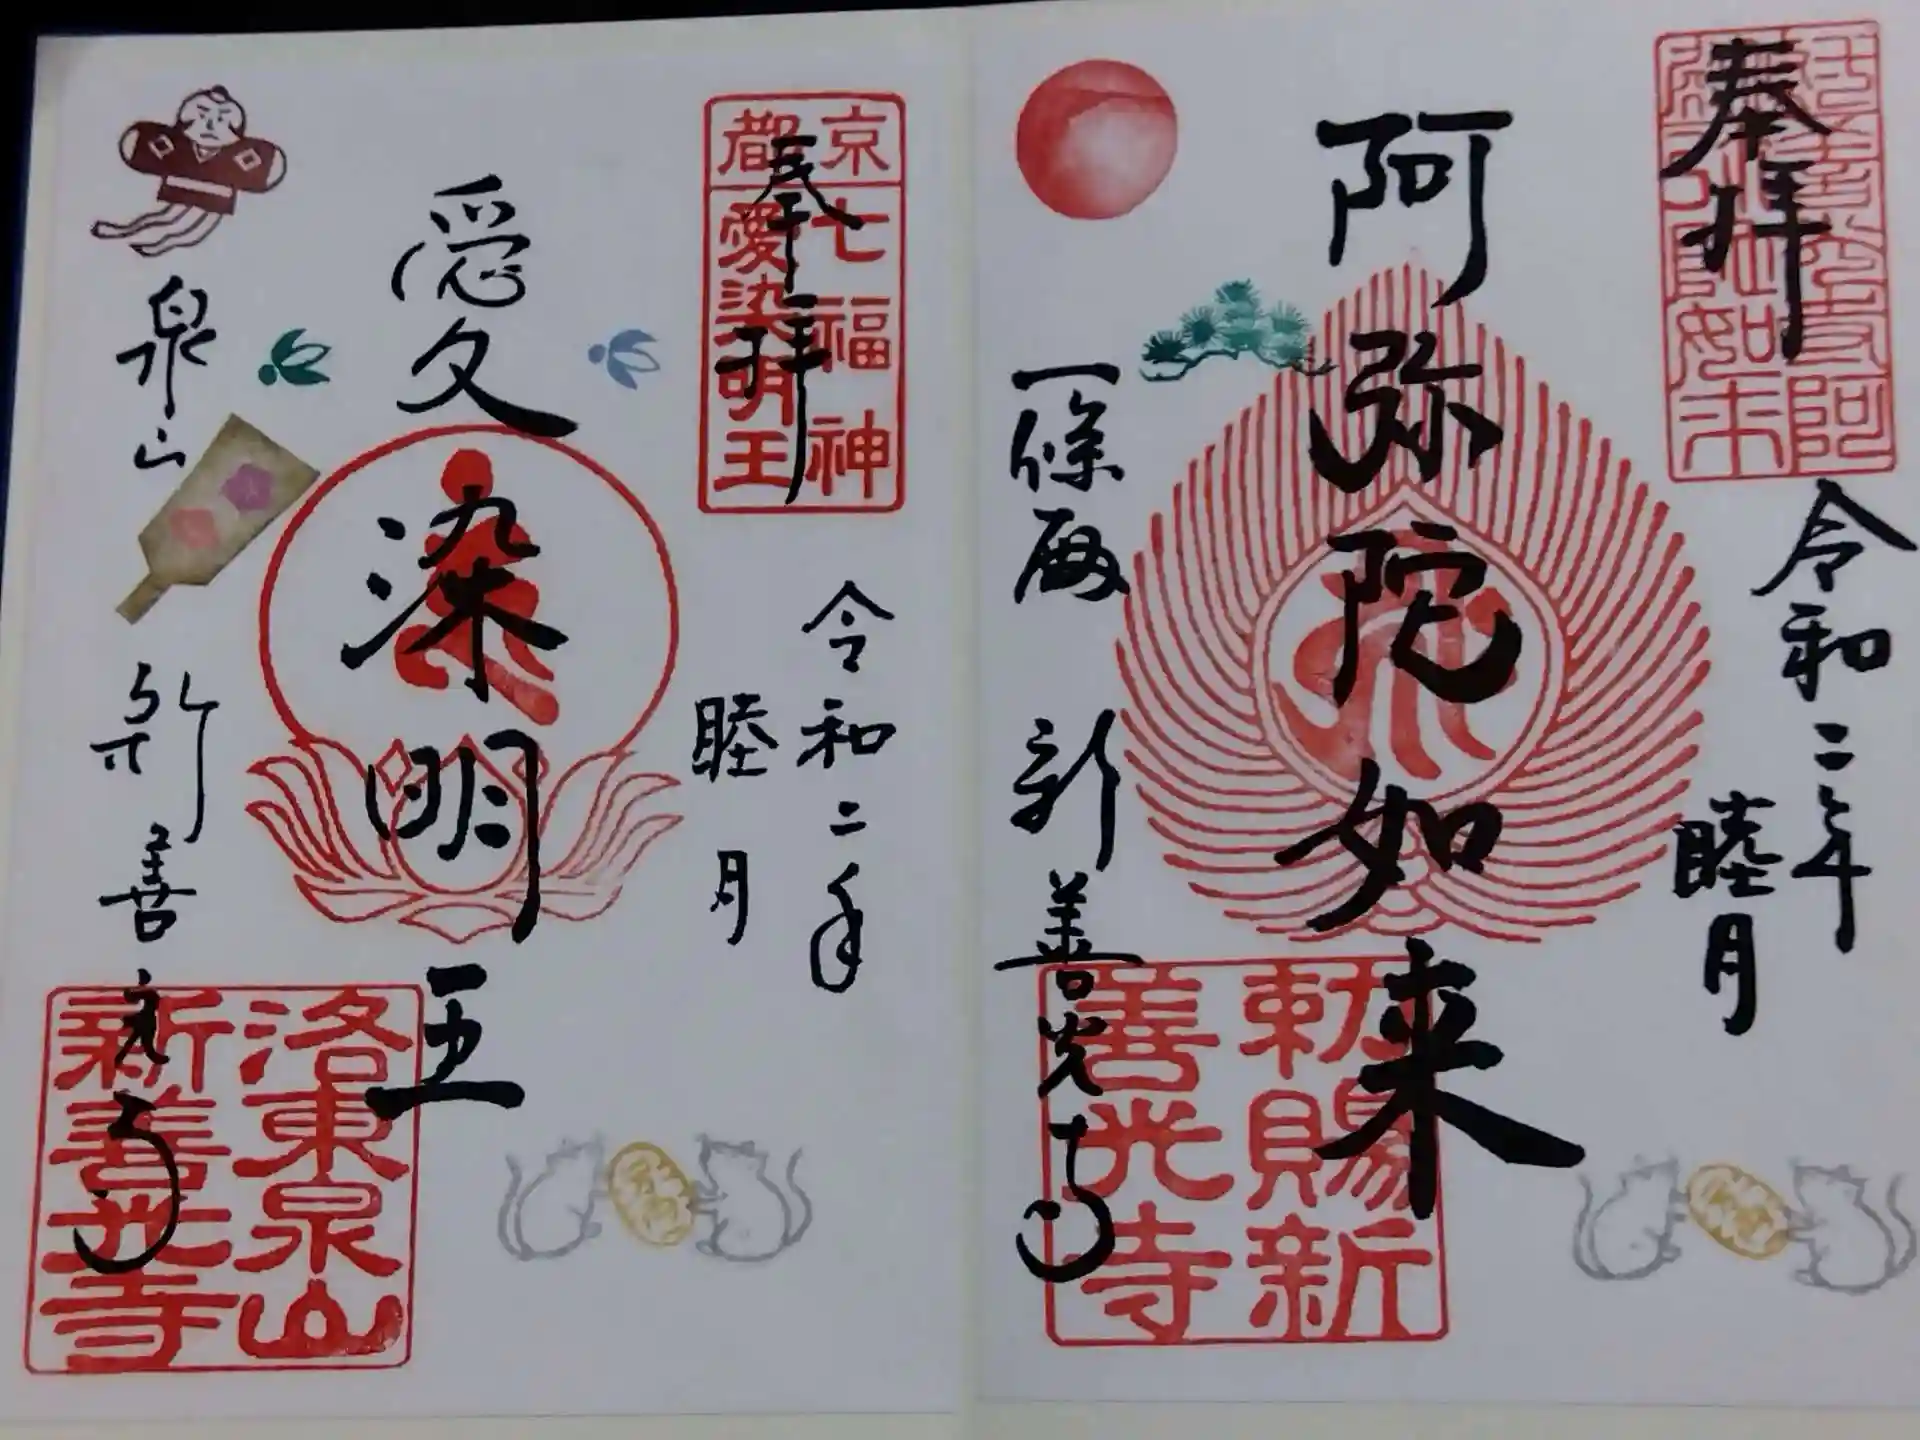 奉拝
令和二年
睦月
阿弥陀如来
一條殿 新善光寺
勅賜新
善光寺
京都
七福神
愛染明王
奉拝
令和二年
睦月
愛染明王
泉山 新善光寺
洛東泉山
新善光寺